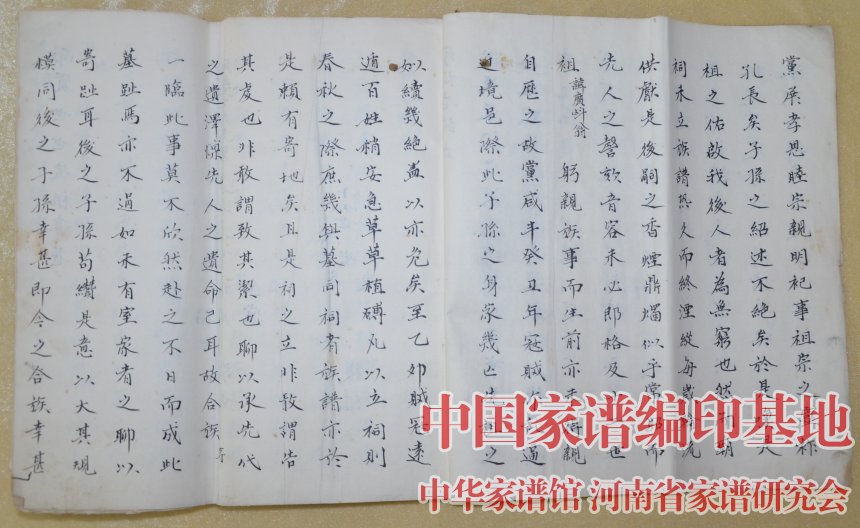 黨展孝思睦宗親明祀事祖宗之
孔長矣子孫之紹述不絕矣於是
祖之佑啟我後人者為無窮也然
祠未立族譜燕久而終湮縱每歲
供獻足後嗣之香煙鼎爥似乎常而
先人之謦欬音容未必即格及也
祖諱廣斗翁躬親族事而生前亦親
自歷之故黨咸丰癸丑年冠賊過
境邑際此子孫之身家幾之
如續幾絕盖以亦危矣至乙卯賊冠遠
遁百姓稍安急草草植磚凡以立祠則
春秋之際庶幾與墓同祠者族譜亦於
是賴有寄地矣且是祠之立非敢謂告
其虔也非敢謂致其潔也聊以承先代
之遺澤懍先人之遺命已耳故合族
一臨此事莫不欣然赴之不日而成此
墓趾焉亦不過如未有室家者之聊以
寄趾耳後之子孫苟纘是意以大其規
模同後之子孫幸甚即今之合族幸甚
中国家谱编印基地
中华家谱馆 河南省家谱研究会